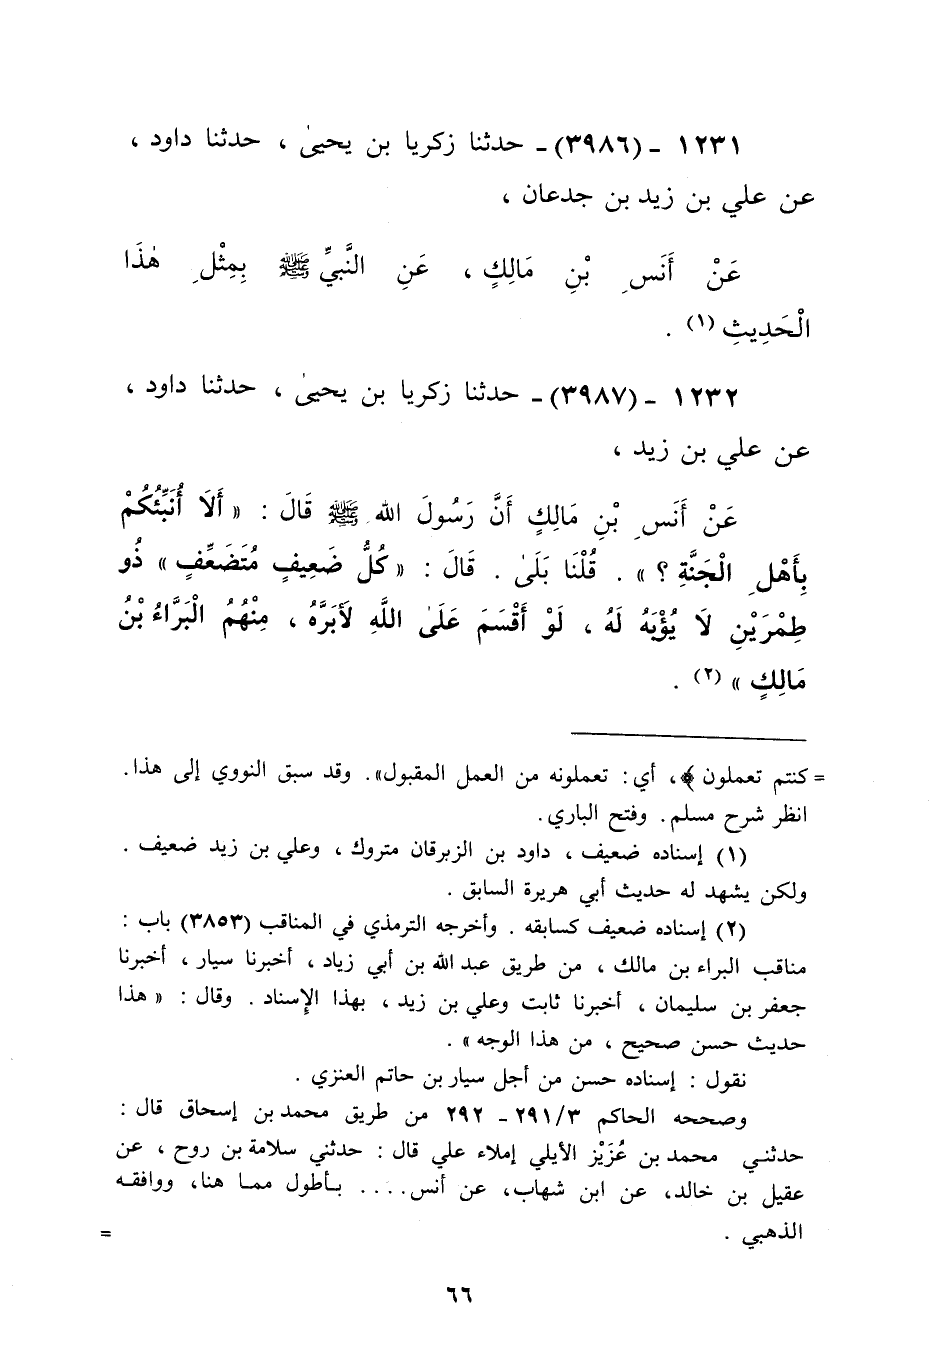 ١٢٣١ - (٣٩٨٦) - حدثنا زكريا بن يحيىٰ ، حدثنا داود ،
عن علي بن زيد بن جدعان ،
عَنْ أَنَسِ بْنِ مَالِكٍ ، عَنِ النَّبِيِّ ﷺ بِمِثْلِ هٰذَا
الْحَدِيثِ (١) .
١٢٣٢ - (٣٩٨٧) - حدثنا زكريا بن يحيىٰ ، حدثنا داود ،
عن علي بن زيد ،
عَنْ أَنَسِ بْنِ مَالِكٍ أَنَّ رَسُولَ اللهِ ﷺ قَالَ : « أَلَا أُنَبِّئُكُمْ
بِأَهْلِ الْجَنَّةِ ؟ » . قُلْنَا بَلَىٰ . قَالَ : « كُلُّ ضَعِيفٍ مُتَضَعِّفٍ » ذُو
طِمْرَيْنِ لَا يُؤْبَهُ لَهُ ، لَوْ أَقْسَمَ عَلَىٰ اللَّهِ لَأَبَرَّهُ ، مِنْهُمُ الْبَرَّاءُ بْنُ
مَالِكٍ » (٢) .
= كنتم تعملون ﴾، أي: تعملونه من العمل المقبول». وقد سبق النووي إلى هذا.
انظر شرح مسلم. وفتح الباري.
(١) إسناده ضعيف ، داود بن الزبرقان متروك ، وعلي بن زيد ضعيف .
ولكن يشهد له حديث أبي هريرة السابق .
(٢) إسناده ضعيف كسابقه . وأخرجه الترمذي في المناقب (٣٨٥٣) باب :
مناقب البراء بن مالك ، من طريق عبد الله بن أبي زياد ، أخبرنا سيار ، أخبرنا
جعفر بن سليمان ، أخبرنا ثابت وعلي بن زيد ، بهذا الإسناد . وقال : « هذا
حديث حسن صحيح ، من هذا الوجه » .
نقول : إسناده حسن من أجل سيار بن حاتم العنزي .
وصححه الحاكم ٢٩١/٣ - ٢٩٢ من طريق محمد بن إسحاق قال :
حدثني محمد بن عُزَيْز الأيلي إملاء علي قال : حدثني سلامة بن روح ، عن
عقيل بن خالد، عن ابن شهاب، عن أنس.... بأطول مما هنا، ووافقه
الذهبي . =
٦٦